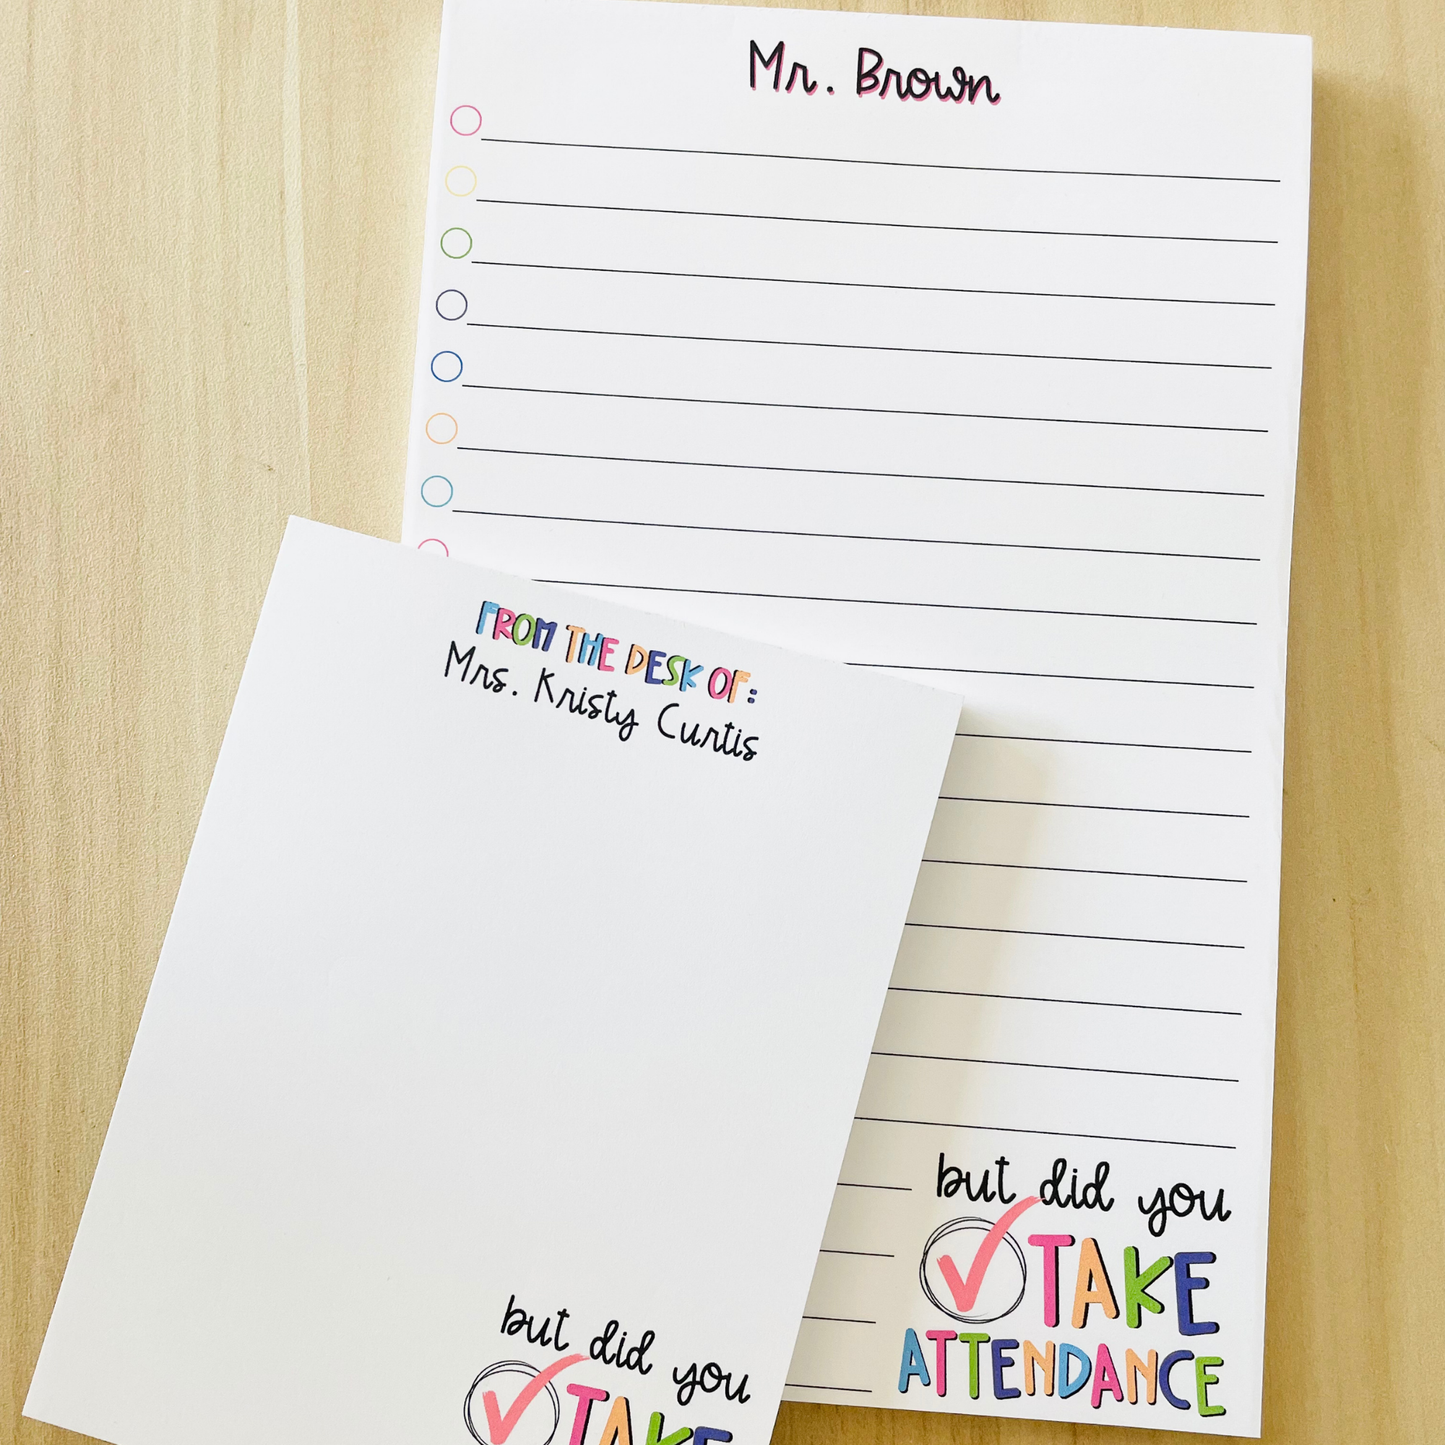 Mr. Brown
FROM THE DESK OF:
Mrs. Kristy Curtis
but did you
TAKE
ATTENDANCE
but did you
TAKE